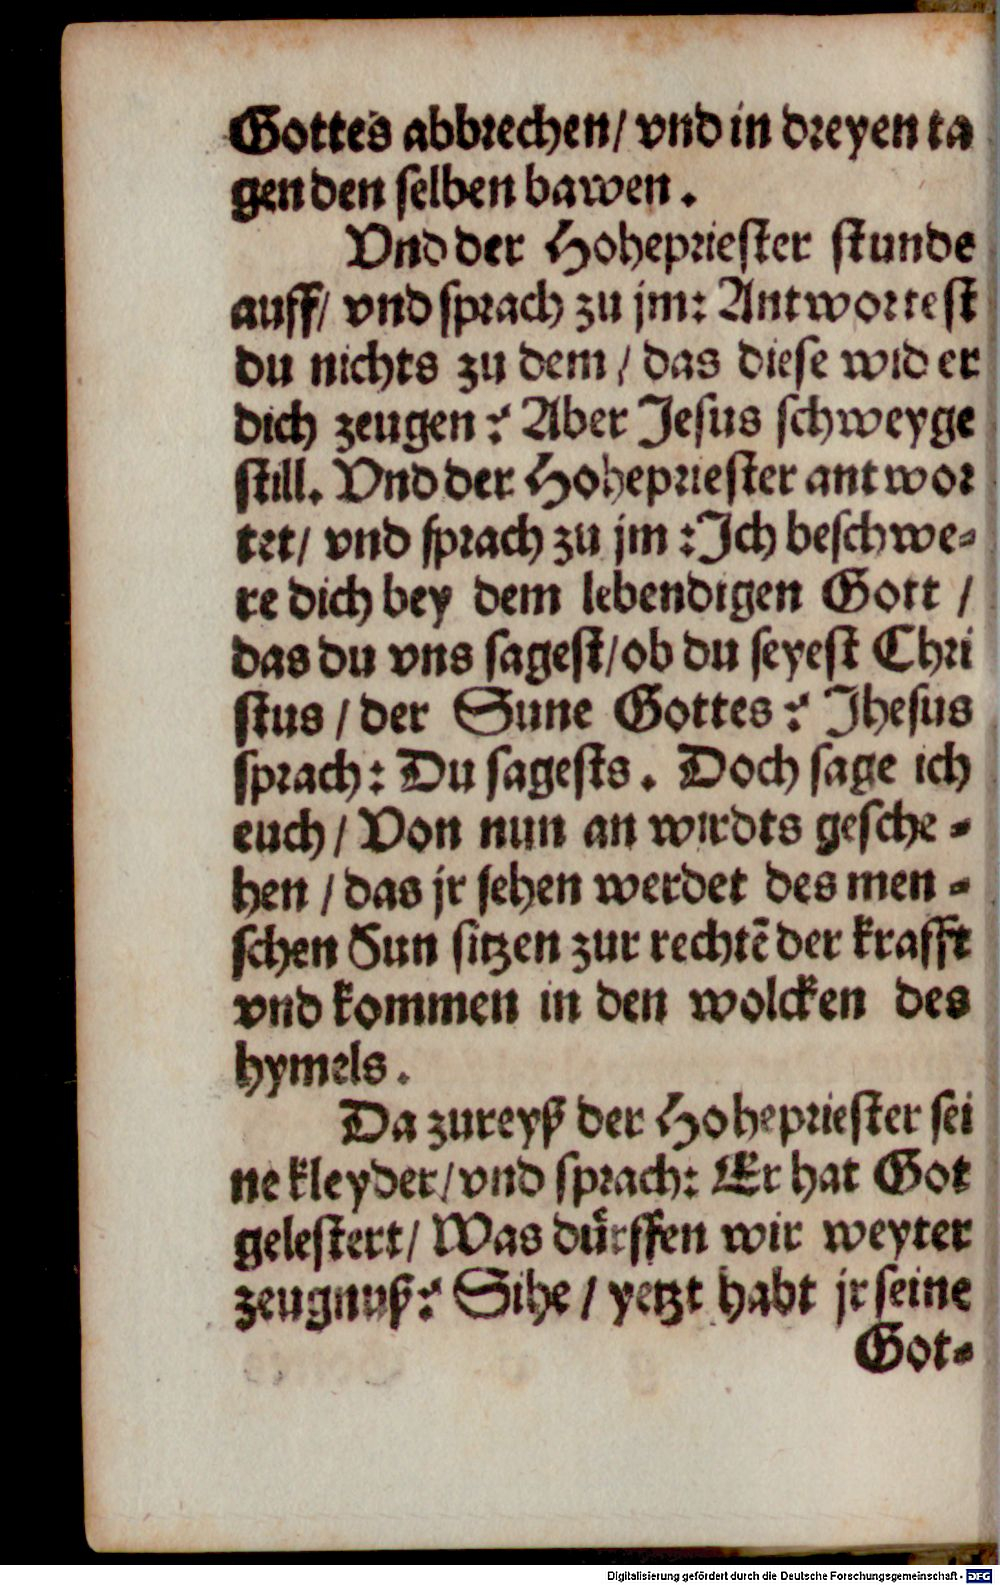 Gottes abbrechen/ vnd in dreyen ta
gen den selben bawen.
Vnd der Hohepriester stunde
auff/ vnd sprach zu jm: Antwortest
du nichts zu dem / das diese wider
dich zeugen? Aber Jesus schweyge
still. Vnd der Hohepriester antwor
tet/ vnd sprach zu jm: Ich beschwe-
re dich bey dem lebendigen Gott /
das du vns sagest/ ob du seyest Chri
stus / der Sune Gottes? Jhesus
sprach: Du sagests. Doch sage ich
euch / Von nun an wirdts gesche-
hen / das jr sehen werdet des men-
schen Sun sitzen zur rechtẽ der krafft
vnd kommen in den wolcken des
hymels.
Da zureyß der Hohepriester sei
ne kleyder/ vnd sprach: Er hat Got
gelestert/ Was dürffen wir weyter
zeugnuß? Sihe / yetzt habt jr seine
Got-
Digitalisierung gefördert durch die Deutsche Forschungsgemeinschaft - DFG